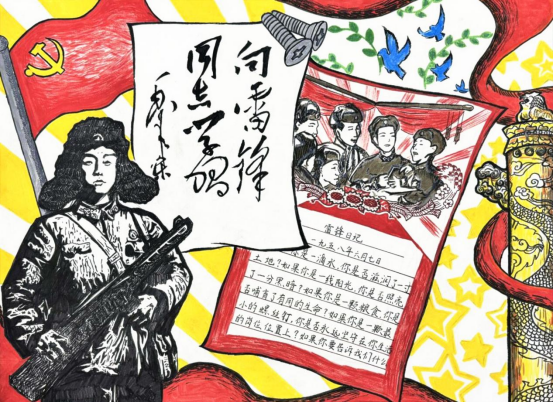 向雷锋
同志学习
毛泽东
雷锋日记
一九五八年六月七日
你是一滴水,你是否滋润了一寸
土地?如果你是一线阳光,你是否照亮
了一分黑暗?如果你是一颗粮食,你是
否哺育了有用的生命?如果你是一颗最
小的螺丝钉,你是否永远坚守在你生活
的岗位位置上?如果你要告诉我们什么